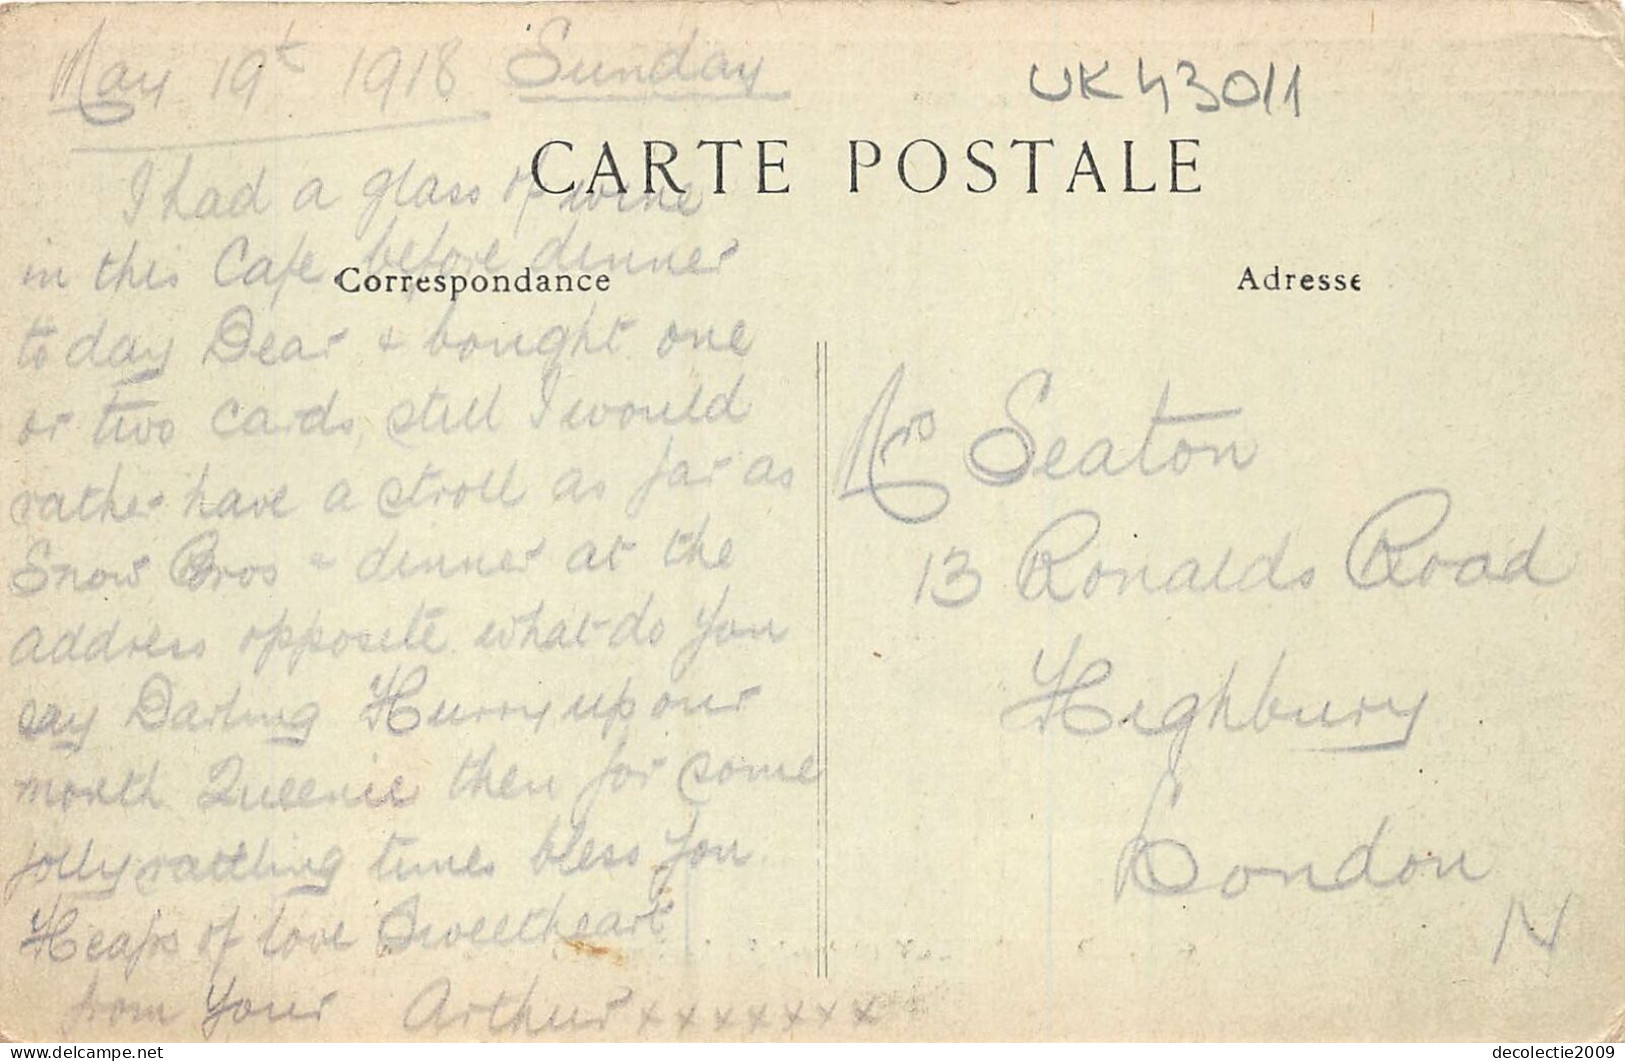 May 19t 1918 Sunday
UK43011
CARTE POSTALE
I had a glass of wine
in this Cafe before dinner
Correspondance
Adresse
to day Dear & bought one
or two cards, still I would
rather have a stroll as far as
Snow Bros & dinner at the
address opposite what do you
say Darling Hurry up our
month Queenie then for some
jolly rattling times bless you
Heaps of love Sweetheart
from Your Arthur xxxxxxx
Mrs Seaton
13 Ronalds Road
Highbury
London
N
delcampe.net
decolectie2009